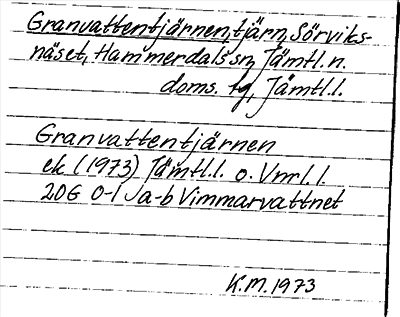 Granvattentjärnen, tjärn, Sörviks-
näset, Hammerdals sn, Jämtl. n.
doms. tg, Jämtl.l.
Granvattentjärnen
ek (1973) Jämtl.l. o. Vnrl.l.
20G 0-1 Ja-b Vimmarvattnet
K.M. 1973